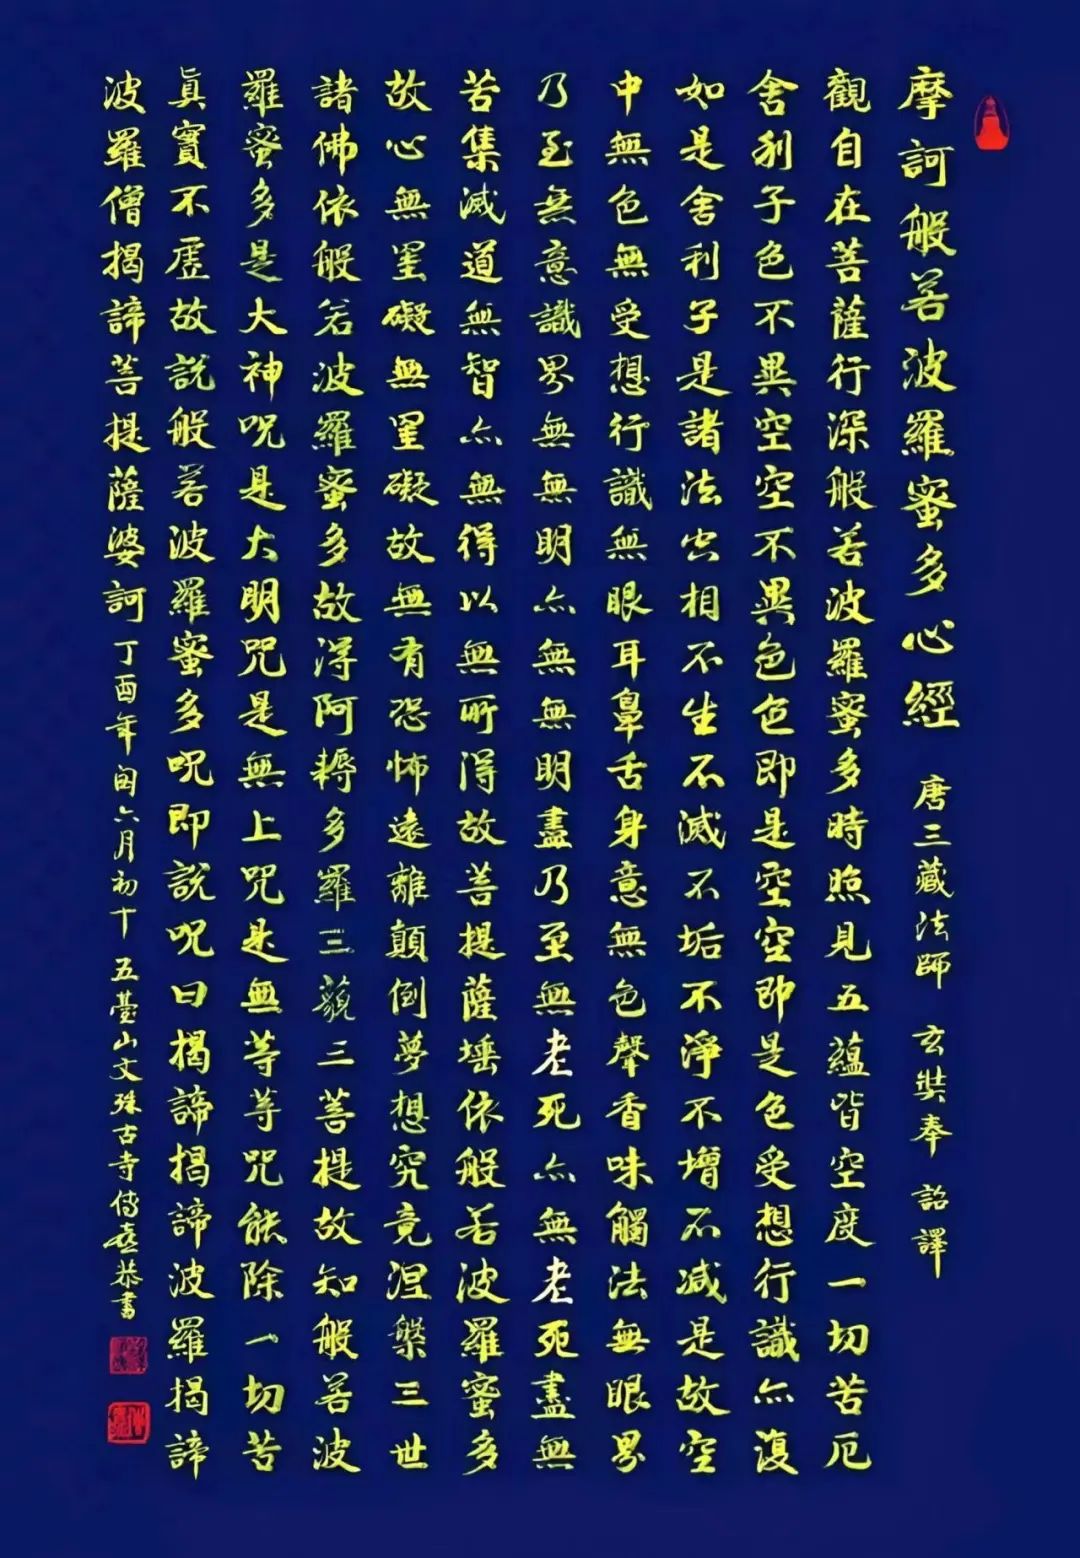 摩訶般若波羅蜜多心經 唐三藏法師 玄奘奉 詔譯
觀自在菩薩行深般若波羅蜜多時照見五蘊皆空度一切苦厄
舍利子色不異空空不異色色即是空空即是色受想行識亦復
如是舍利子是諸法空相不生不滅不垢不淨不增不減是故空
中無色無受想行識無眼耳鼻舌身意無色聲香味觸法無眼界
乃至無意識界無無明亦無無明盡乃至無老死亦無老死盡無
苦集滅道無智亦無得以無所得故菩提薩埵依般若波羅蜜多
故心無罣礙無罣礙故無有恐怖遠離顛倒夢想究竟涅槃三世
諸佛依般若波羅蜜多故得阿耨多羅三藐三菩提故知般若波
羅蜜多是大神呪是大明咒是無上咒是無等等咒能除一切苦
眞實不虛故說般若波羅蜜多呪即說呪曰揭諦揭諦波羅揭諦
波羅僧揭諦菩提薩婆訶 丁酉年閏六月初十 五臺山文殊古寺傳 恭書